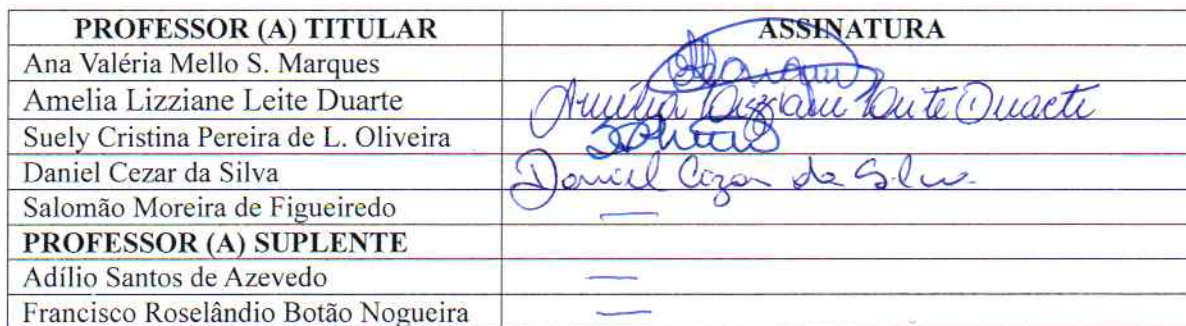 PROFESSOR (A) TITULAR ASSINATURA
Ana Valéria Mello S. Marques
Amelia Lizziane Leite Duarte Amélia Lizziane Leite Duarte
Suely Cristina Pereira de L. Oliveira
Daniel Cezar da Silva Daniel Cezar da Silva
Salomão Moreira de Figueiredo —
PROFESSOR (A) SUPLENTE
Adílio Santos de Azevedo —
Francisco Roselândio Botão Nogueira —